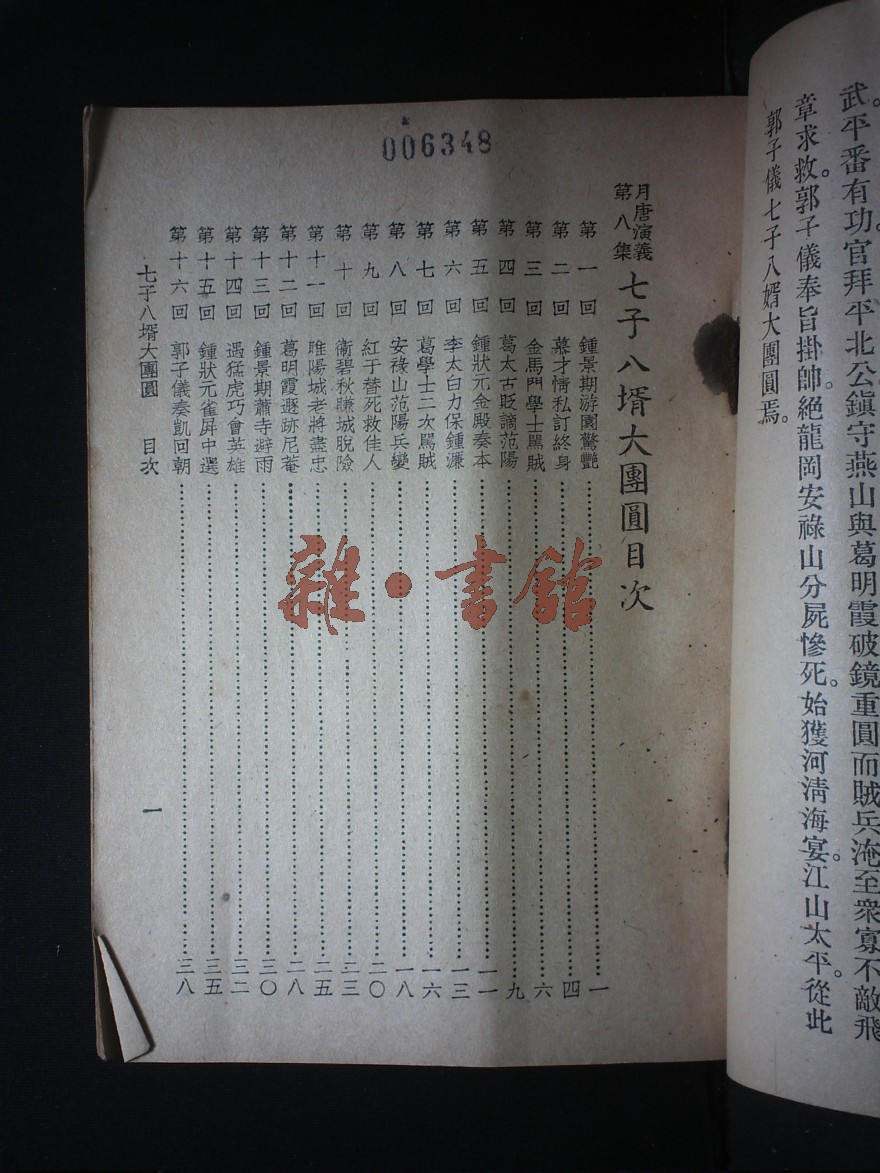 武。平番有功。官拜平北公。鎮守燕山。與葛明霞破鏡重圓。而賊兵淹至。衆寡不敵。飛
章求救。郭子儀奉旨掛帥。絕龍岡安祿山分屍慘死。始獲河清海宴。江山太平。從此
郭子儀七子八婿大團圓焉。
006348
月唐演義
第八集
七子八壻大團圓目次
第一回 鍾景期游園驚艷 一
第二回 慕才情私訂終身 四
第三回 金馬門學士罵賊 六
第四回 葛太古貶謫范陽 九
第五回 鍾狀元金殿奏本 一一
第六回 李太白力保鍾濂 一三
第七回 葛學士二次罵賊 一六
第八回 安祿山范陽兵變 一八
第九回 紅于替死救佳人 二〇
第十回 衛碧秋賺城脫險 二三
第十一回 睢陽城老將盡忠 二五
第十二回 葛明霞遯跡尼菴 二八
第十三回 鍾景期蕭寺避雨 三〇
第十四回 遇猛虎巧會英雄 三二
第十五回 鍾狀元雀屏中選 三五
第十六回 郭子儀奏凱回朝 三八
七子八壻大團圓 目次 一
雜·書館